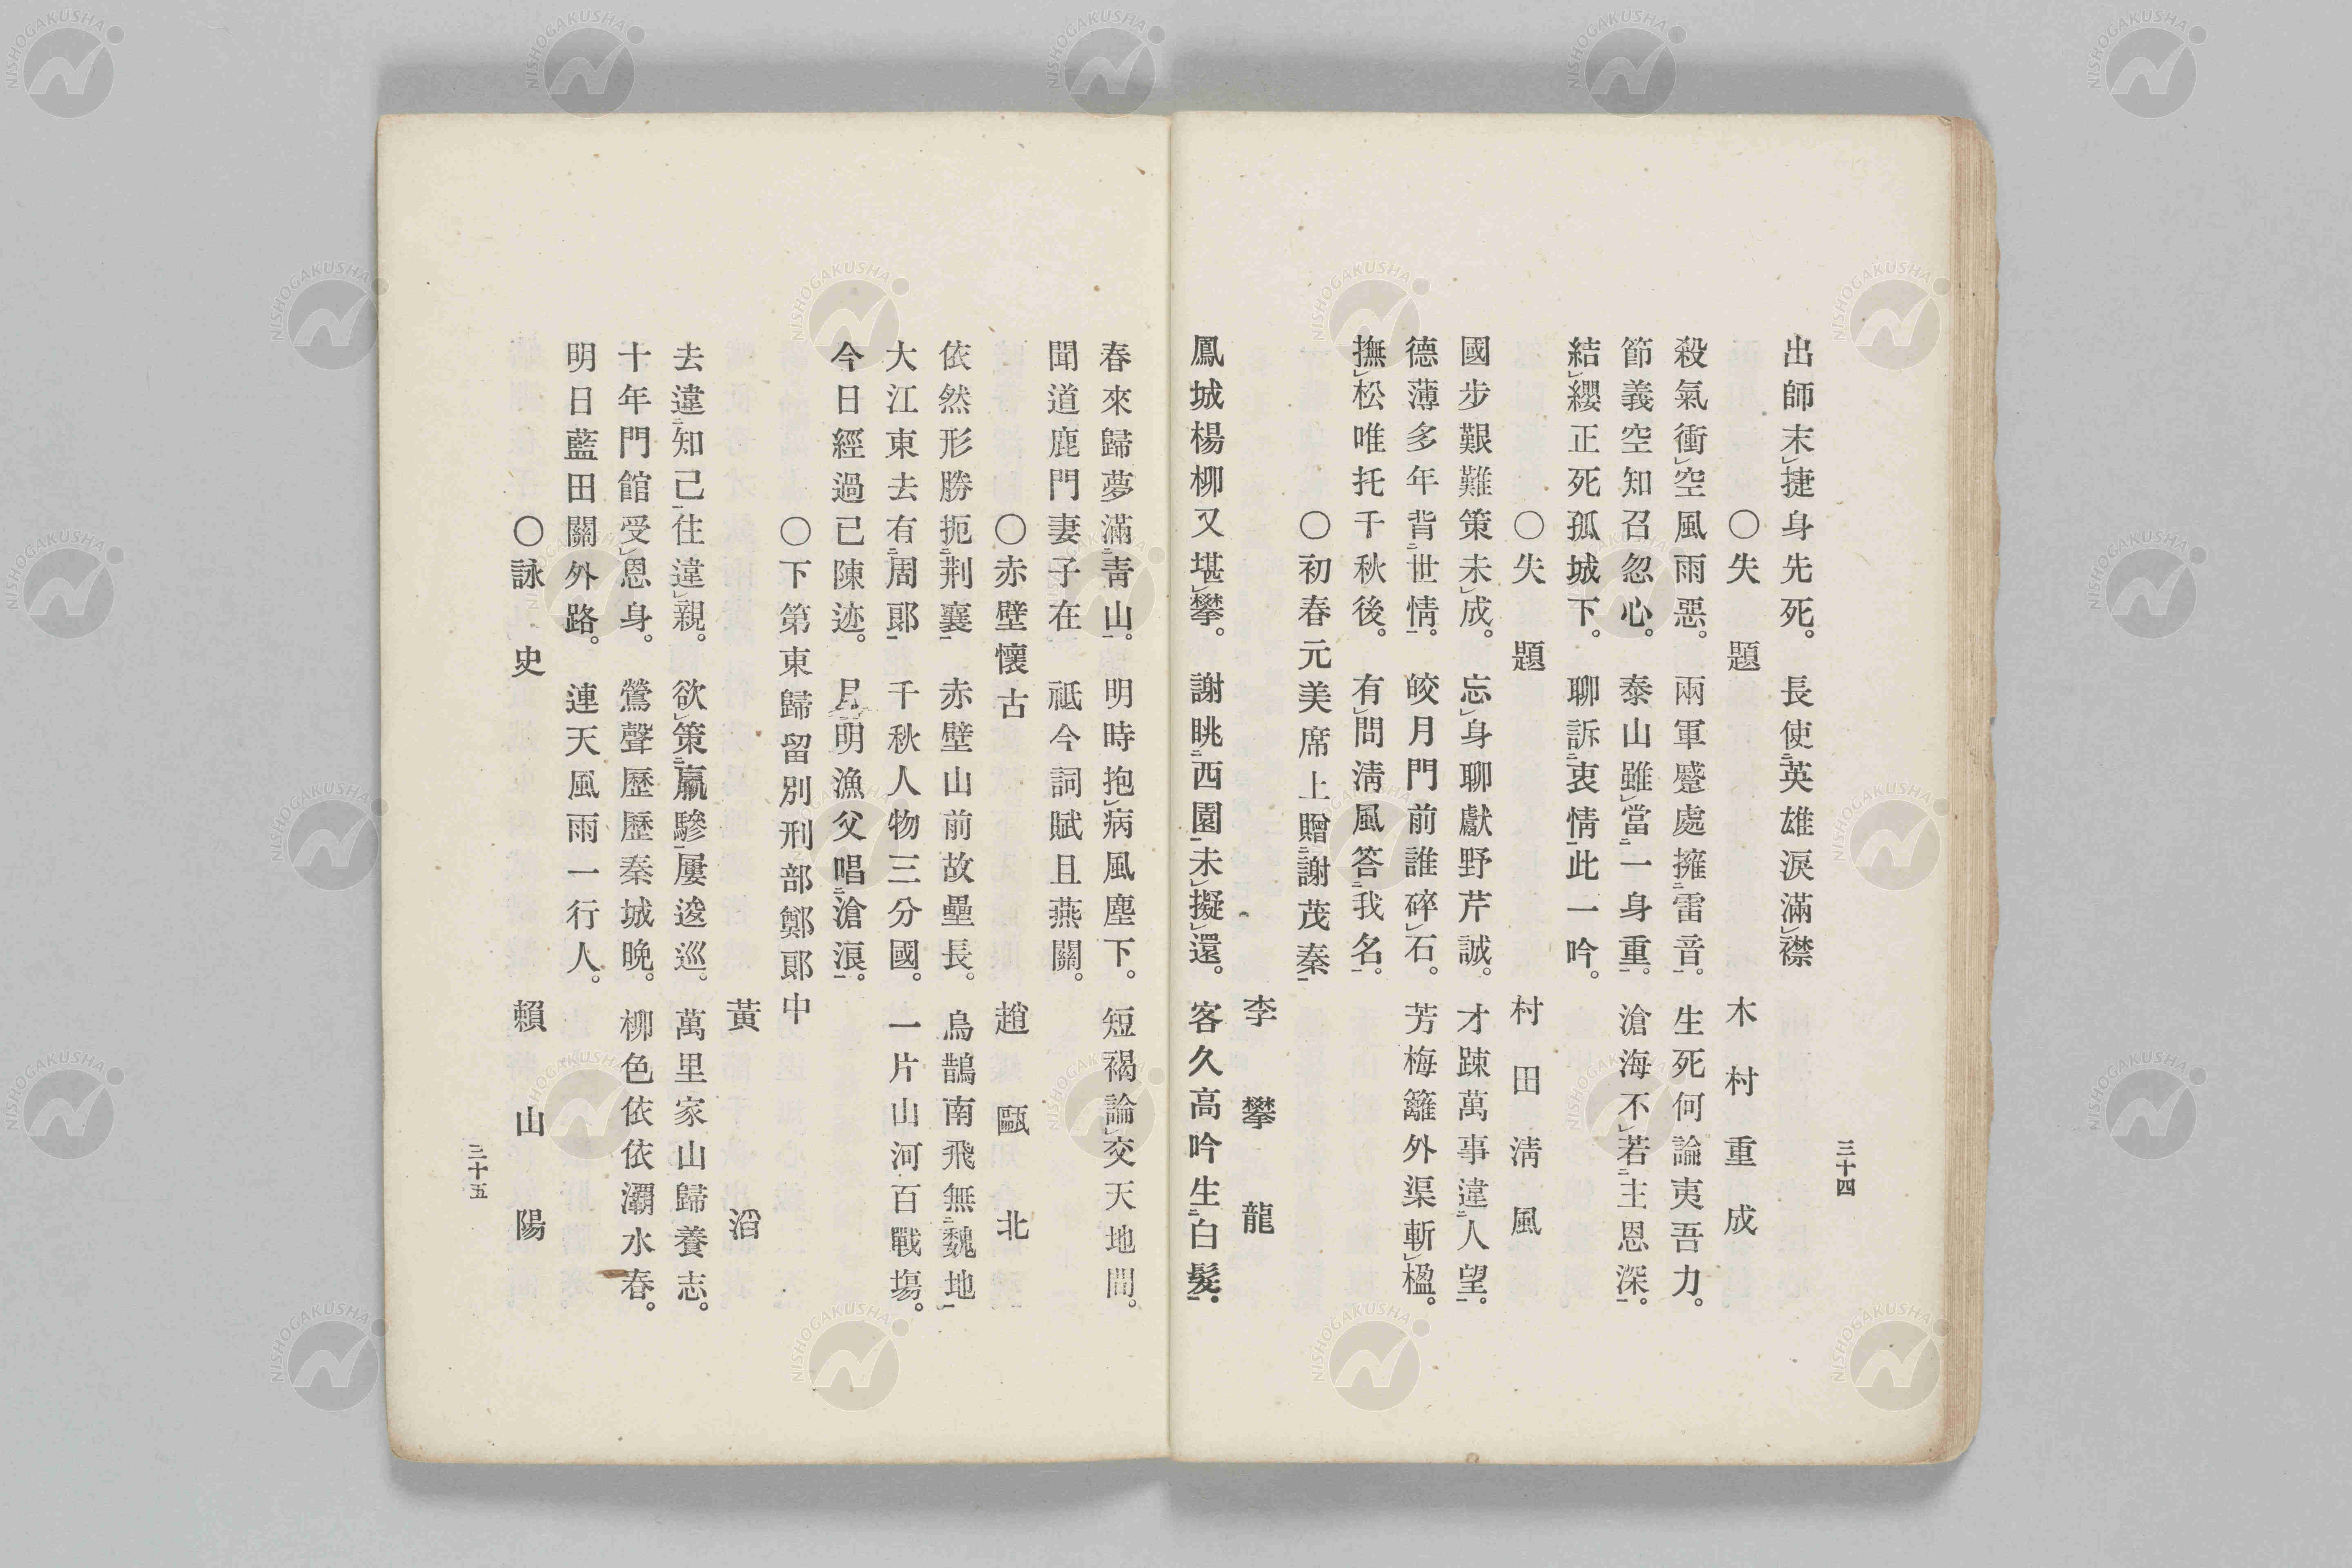 三十四
出師末㆑捷身先死。長使㆓英雄淚滿㆑襟
○失題 木村重成
殺氣衝㆑空風雨惡。兩軍蹙處擁㆓雷音㆒。生死何論夷吾力。
節義空知召忽心。泰山雖㆑當㆓一身重㆒。滄海不㆑若㆓主恩深㆒。
結㆑纓正死孤城下。聊訴㆓衷情㆒此一吟。
○失題 村田清風
國步艱難策未㆑成。忘㆑身聊獻野芹誠。才踈萬事違㆓人望㆒。
德薄多年背㆓世情㆒。皎月門前誰碎㆑石。芳梅籬外渠斬㆑楹。
撫㆑松唯托千秋後。有㆑問淸風答㆓我名㆒。
○初春元美席上贈㆓謝茂秦㆒
李攀龍
鳳城楊柳又堪㆑攀。謝眺㆓西園㆒未㆑擬㆑還。客久高吟生㆓白髮㆒。
春來歸夢滿㆓靑山㆒。明時抱㆑病風塵下。短褐論㆑交天地間。
聞道鹿門妻子在 祗今詞賦且燕關。
○赤壁懷古 趙甌北
依然形勝扼㆓荆襄㆒ 赤壁山前故壘長。烏鵲南飛無㆓魏地㆒
大江東去有㆓周郞㆒ 千秋人物三分國。一片山河百戰塲。
今日經過已陳迹。月明漁父唱㆓滄浪㆒。
○下第東歸留別刑部鄭郞中
黃滔
去違㆓知己㆒住違㆑親。欲㆑策㆓羸驂㆒屢逡巡。萬里家山歸養志。
十年門館受㆑恩身。鶯聲歷歷秦城晚。柳色依依灞水春。
明日藍田關外路。連天風雨一行人。
○詠史 賴山陽
三十五
NISHOGAKUSHA